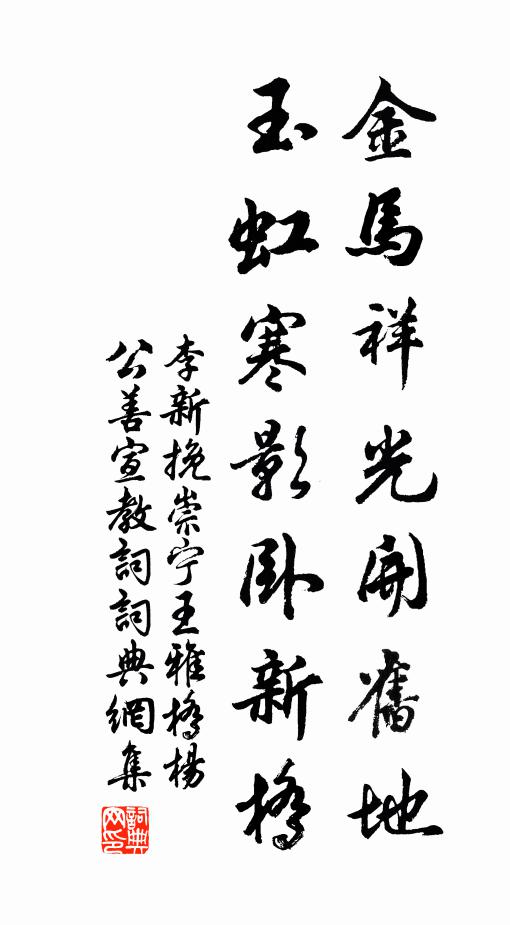 金馬祥光開舊地
玉虹寒影臥新橋
李新挽崇宁王雅橋楊
公善宣教詞詞典網集
詞典网印